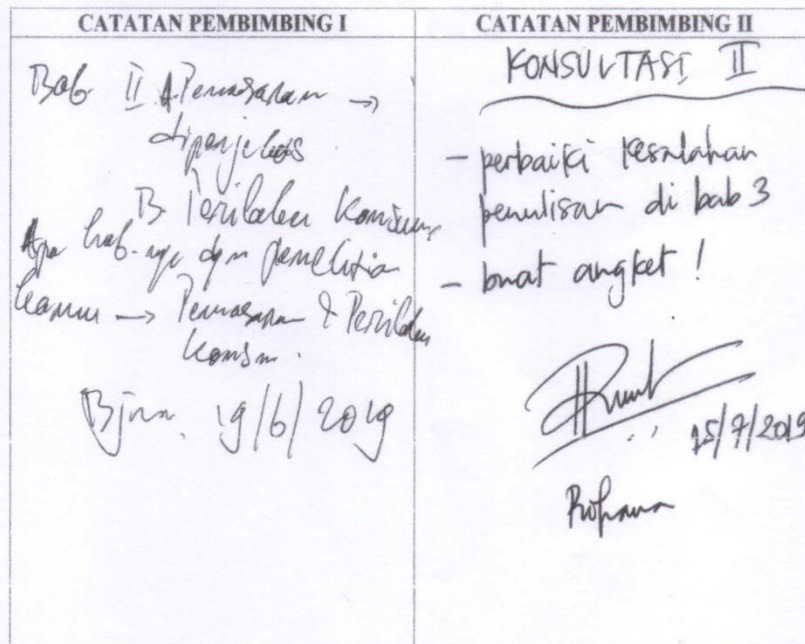 CATATAN PEMBIMBING I
Bab II A. Pemasaran →
diperjelas
B Perilaku Konsumen
Apa hub.nya dgn penelitian
kamu → Pemasaran & Perilaku
konsm.
Bjm, 19/6/2019
CATATAN PEMBIMBING II
KONSULTASI II
- perbaiki kesalahan
penulisan di bab 3
- buat angket !
15/7/2019